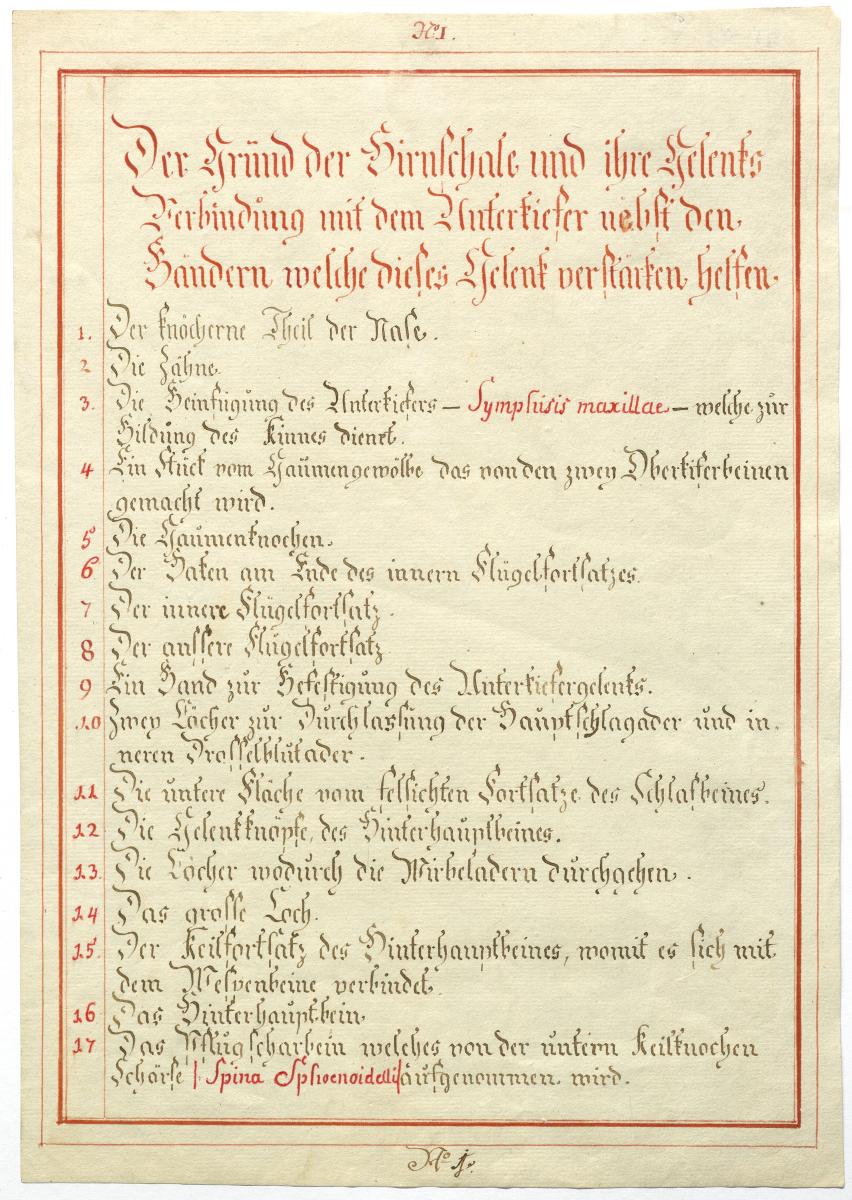 No 1.
Der Grund der Hirnschale und ihre Gelenks
Verbindung mit dem Unterkiefer nebst den
Bändern welche dieses Gelenk verstärken helfen.
1. Der knöcherne Theil der Nase.
2 Die Zähne.
3. Die Beinfügung des Unterkiefers – Symphisis maxillae – welche zur
Bildung des Kinnes dienet.
4 Ein Stück vom Gaumengewölbe das von den zwey Oberkiferbeinen
gemacht wird.
5 Die Gaumenknochen.
6 Der Haken am Ende des innern Flügelfortsatzes.
7 Der innere Flügelfortsatz.
8 Der aussere Flügelfortsatz
9 Ein Band zur Befestigung des Unterkiefergelenks.
10 Zwey Löcher zur Durchlassung der Hauptschlagader und in-
neren Drosselblutader.
11 Die untere Fläche vom felsichten Fortsatze des Schlafbeines.
12 Die Gelenkknöpfe des Hinterhauptbeines.
13. Die Löcher wodurch die Wirbeladern durchgehen.
14 Das grosse Loch.
15. Der Keilfortsatz des Hinterhauptbeines, womit es sich mit
dem Wespenbeine verbindet.
16 Das Hinterhauptbein.
17 Das Pflugscharbein welches von der untern Keilknochen
Schärfe | Spina Sphoenoidalis | aufgenommen wird.
No 1.